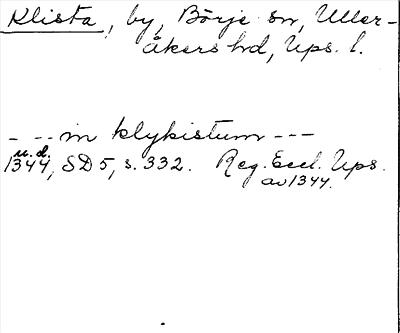 Klista, by, Börje sn, Uller-
åkers hd, Ups. l.
- -- in klykistum ---
u. d.
1344, SD 5, s. 332. Reg. Eccl. Ups.
av 1344.